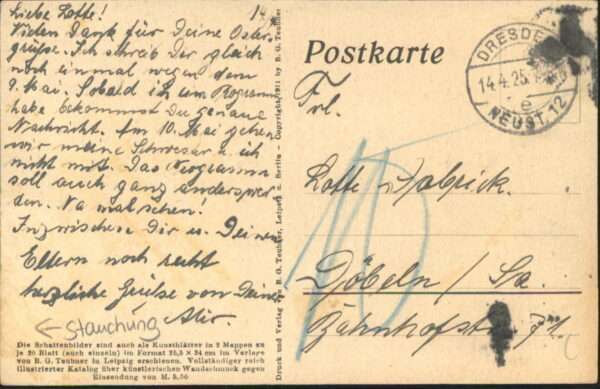 Liebe Lotte! 14.4.
Vielen Dank für Deine Oster-
grüsse. Ich schreib Dir gleich
noch einmal wegen dem
9. Mai. Sobald ich ein Programm
habe bekommst Du genaue
Nachricht. Am 10. Mai gehen
wir meine Schwester u. ich
nicht mit. Das Programm
soll auch ganz anders wer-
den. Na mal sehen!
Inzwischen Dir u. Deinen
Eltern noch recht
herzliche Grüße von Deiner
← Stauchung
Die Schattenbilder sind auch als Kunstblätter in 2 Mappen zu
je 20 Blatt (auch einzeln) im Format 25,5 × 34 cm im Verlage
von B. G. Teubner in Leipzig erschienen. Vollständiger reich
illustrierter Katalog über künstlerischen Wandschmuck gegen
Einsendung von M. 0,50
Druck und Verlag von B. G. Teubner, Leipzig u. Berlin – Copyright 1911 by B. G. Teubner
Postkarte
DRESDEN
14.4.25
e
NEUST. 12
Frl.
Lotte
Döbeln / Sa.
Bahnhofstr. 71
10